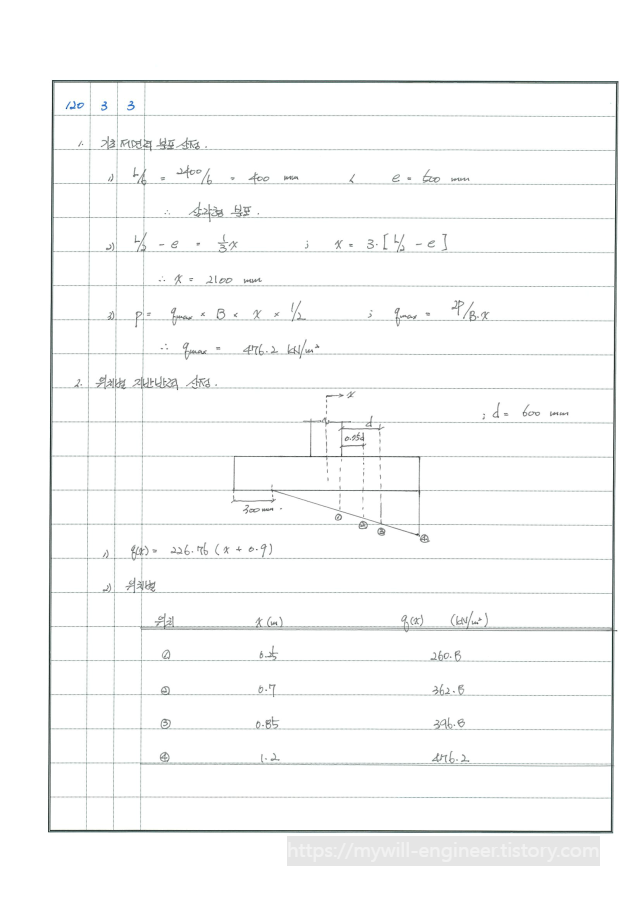 120 3 3
1. 기초 저면의 분포 산정.
1) L/6 = 2400/6 = 400 mm < e = 500 mm
∴ 삼각형 분포.
2) L/2 - e = 1/3 x ; x = 3·[L/2 - e]
∴ x = 2100 mm
3) P = qmax × B × x × 1/2 ; qmax = 2P/B·x
∴ qmax = 476.2 kN/m²
2. 위치별 지반반력 산정.
x
; d = 600 mm
d
0.75d
300mm.
① ② ③ ④
1) q(x) = 226.76 (x + 0.9)
2) 위치별
위치 x(m) q(x) (kN/m²)
① 0.25 260.8
② 0.7 362.8
③ 0.85 396.8
④ 1.2 476.2
https://mywill-engineer.tistory.com